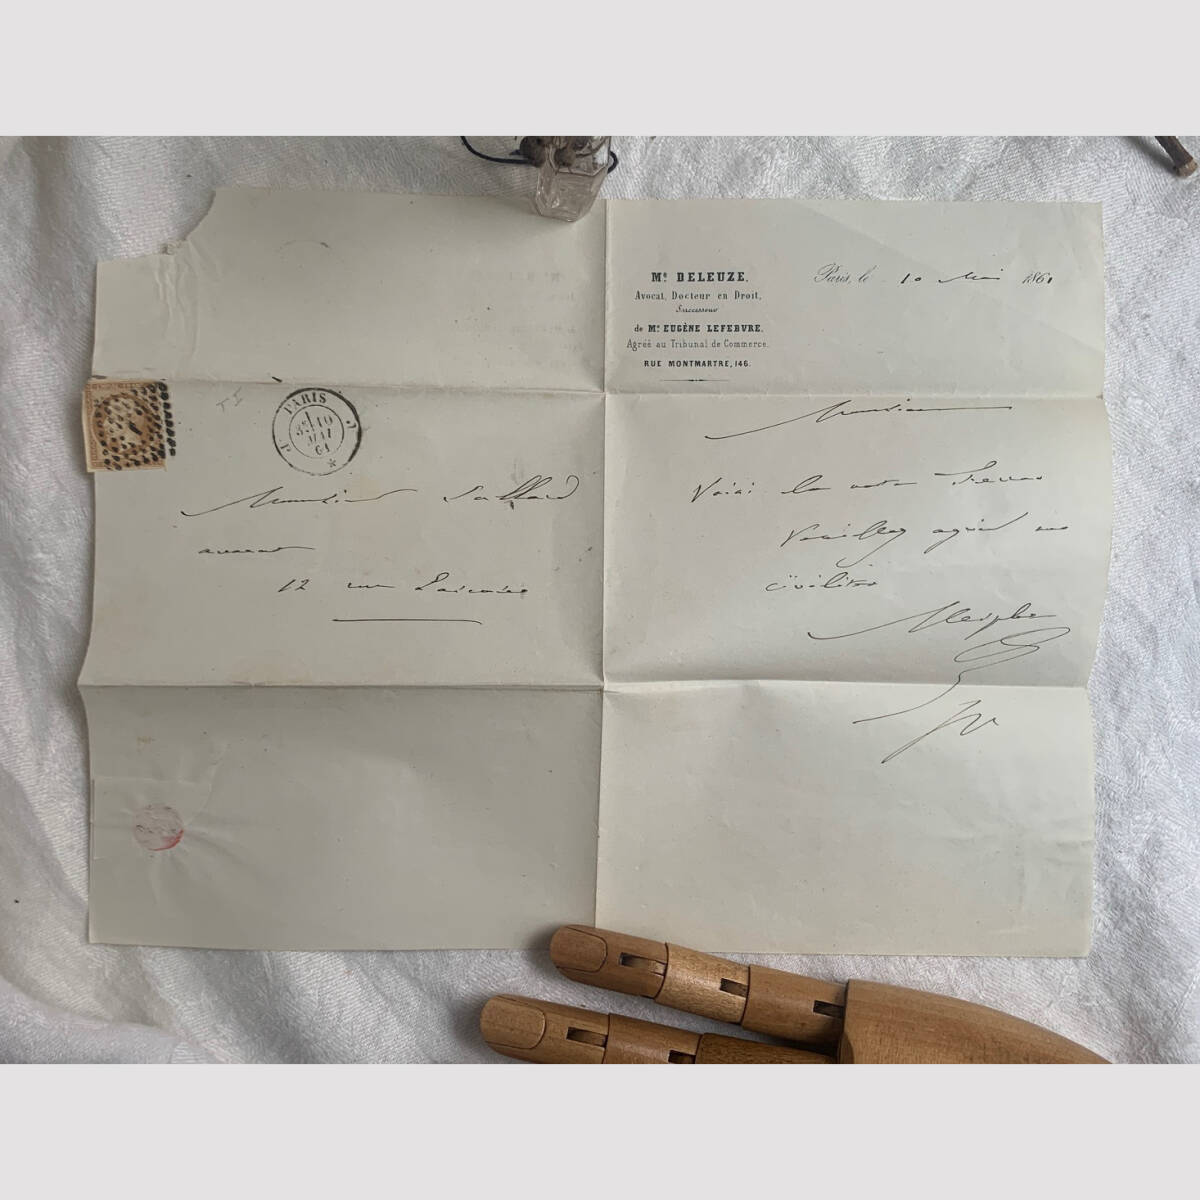 PARIS
3E 10
MAI
61
J
Monsieur
avocat
12 rue
Mᵉ DELEUZE.
Avocat, Docteur en Droit,
Successeur
de Mᵉ EUGÈNE LEFEBVRE.
Agréé au Tribunal de Commerce.
RUE MONTMARTRE, 146.
Paris, le 10 Mai 1861
Monsieur
Voici le votre
Veuillez agréer mes
civilités